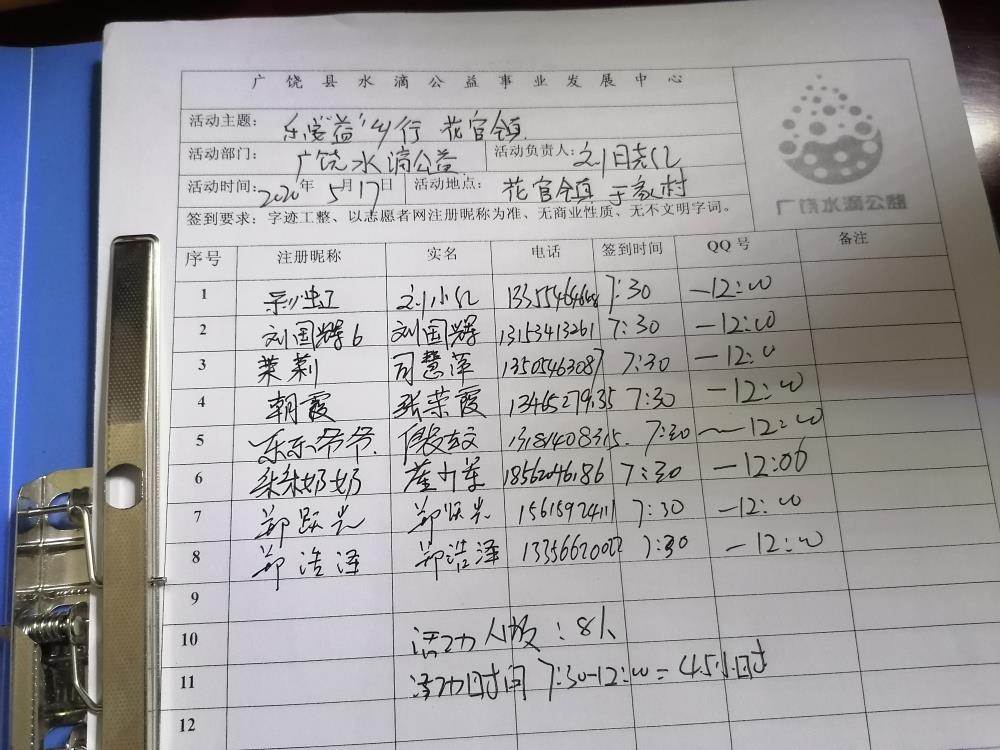 广饶县水滴公益事业发展中心
活动主题： 益乡行 花官镇
活动部门： 广饶水滴公益 活动负责人：刘晓红
活动时间： 2020年 5月17日 活动地点： 花官镇 于家村
签到要求：字迹工整、以志愿者网注册昵称为准、无商业性质、无不文明字词。
广饶水滴公益
序号 注册昵称 实名 电话 签到时间 QQ 号 备注
1 刘小红 7:30 —12:00
2 刘国辉6 刘国辉 13153413261 7:30 —12:00
3 茉莉 司慧萍 13505463087 7:30 —12:00
4 朝霞 张荣霞 13465279135 7:30 —12:00
5 乐乐爷爷 13181408315 7:30 —12:00
6 奶奶 18562046186 7:30 —12:00
7 郑跃光 郑跃光 15615924111 7:30 —12:00
8 郑浩泽 郑浩泽 13356620022 7:30 —12:00
9
10 活动人数：8人
11 活动时间 7:30-12:00=4.5小时
12